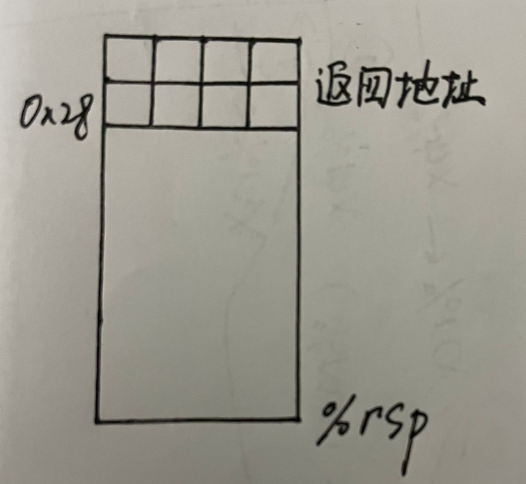 返回地址
0x28
%rsp